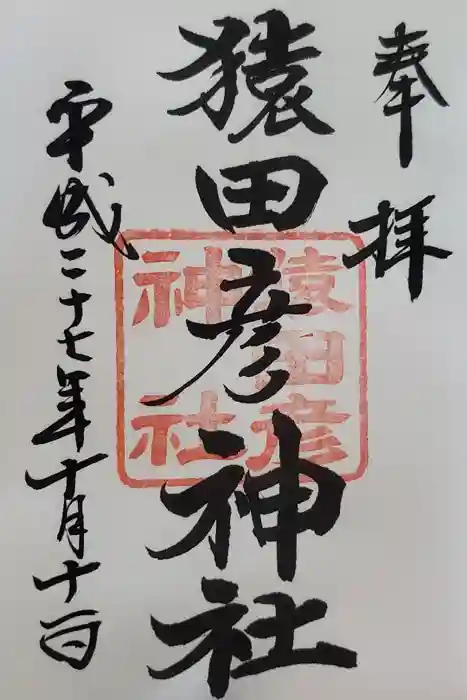 奉拝
猿田彦神社
猿田彦
神社
平成二十七年十月十一日